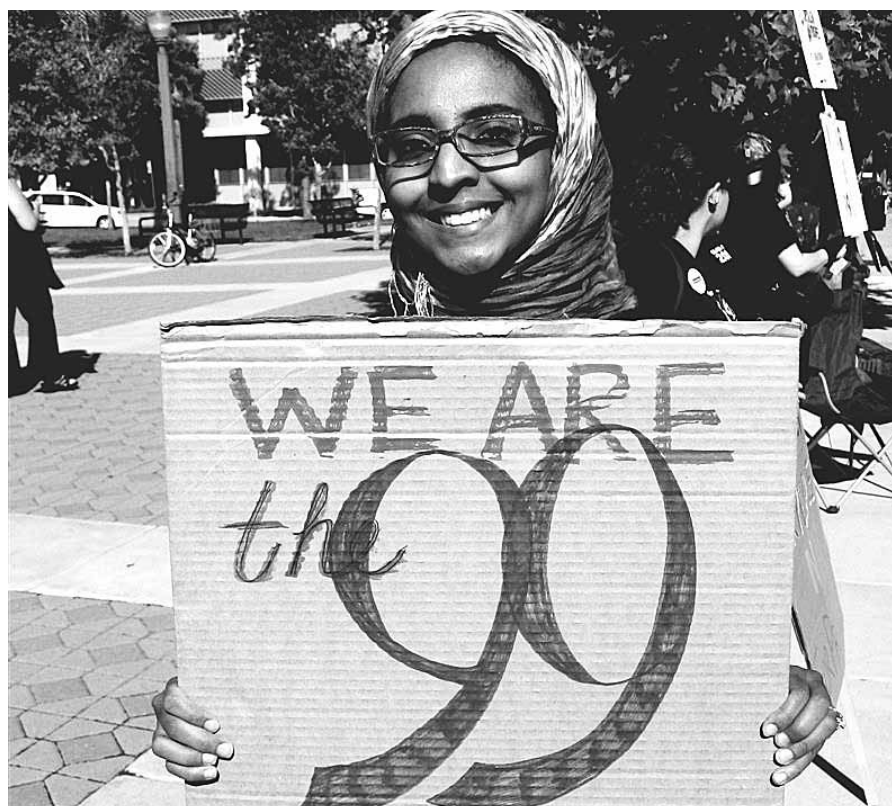 WE ARE
the 99